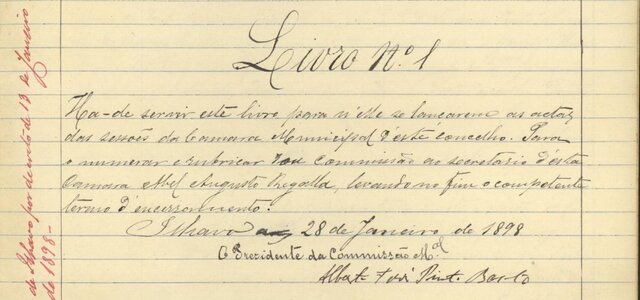 Livro Nº 1
Ha-de servir este livro para n'elle se lançarem as actas
das sessões da Camara Municipal d'este concelho. Para
o numerar e rubricar dou commissão ao secretario d'esta
Camara Abel Augusto Regalla, levando no fim o competente
termo d'encerramento.
Ilhavo 28 de Janeiro de 1898
O Presidente da Commissão Mal
Alberto Pinto Basto
de Ilhavo por decreto de 13 de Janeiro
de 1898-